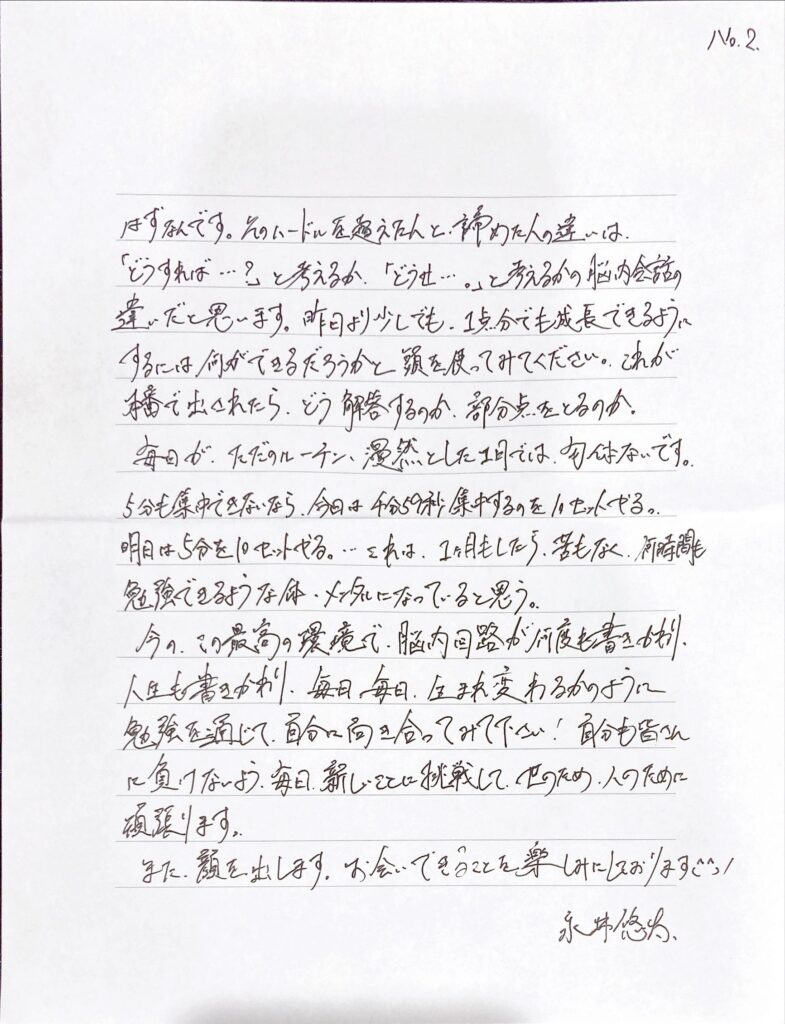 No.2.
はずなんです。そのハードルを越えた人と、諦めた人の違いは、
「どうすれば…?」と考えるか、「どうせ…。」と考えるかの脳内会話の
違いだと思います。昨日より少しでも、1点分でも成長できるように
するには何ができるだろうかと頭を使ってみてください。これが
本番で出されたら、どう解答するのか、部分点をとるのか。
毎日が、ただのルーチン、漫然とした1日では、勿体ないです。
5分も集中できないなら、今日は4分59秒集中するのを10セットやる。
明日は5分を10セットやる。…それは、1ヶ月もしたら、苦もなく、何時間も
勉強できるような体・メンタルになっていると思う。
今の、この最高の環境で、脳内回路が何度も書きかわり、
人生も書きかわり、毎日、毎日、生まれ変わるかのように
勉強を通じて、自分に向き合ってみて下さい!自分も皆さん
に負けないよう、毎日、新しいことに挑戦して、世のため、人のために
頑張ります。
また、顔を出します。お会いできることを楽しみにしております^^♪
永井悠